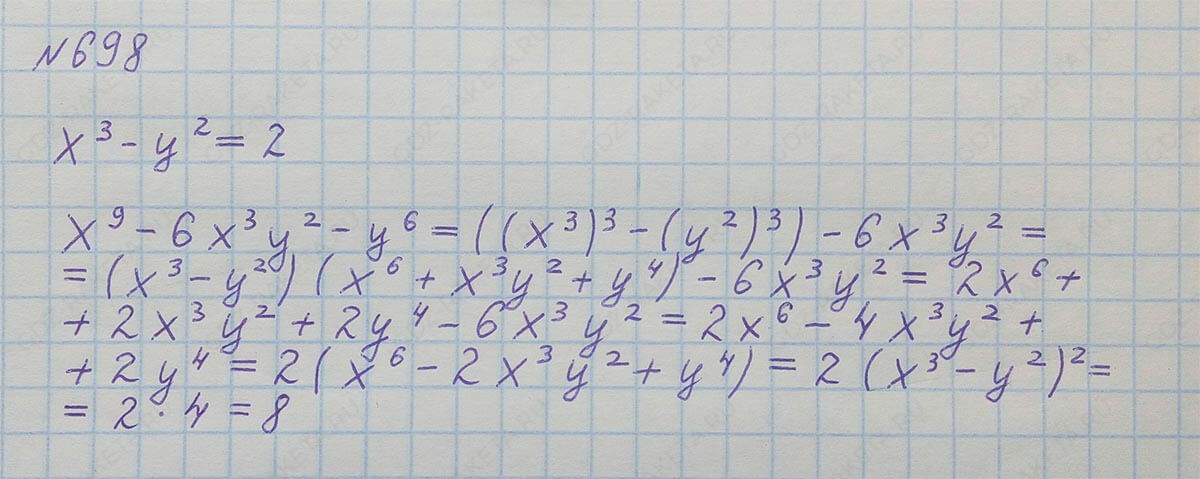 №698
x³ - y² = 2
x⁹ - 6x³y² - y⁶ = ((x³)³ - (y²)³) - 6x³y² =
= (x³ - y²)(x⁶ + x³y² + y⁴) - 6x³y² = 2x⁶ +
+ 2x³y² + 2y⁴ - 6x³y² = 2x⁶ - 4x³y² +
+ 2y⁴ = 2(x⁶ - 2x³y² + y⁴) = 2(x³ - y²)² =
= 2 · 4 = 8